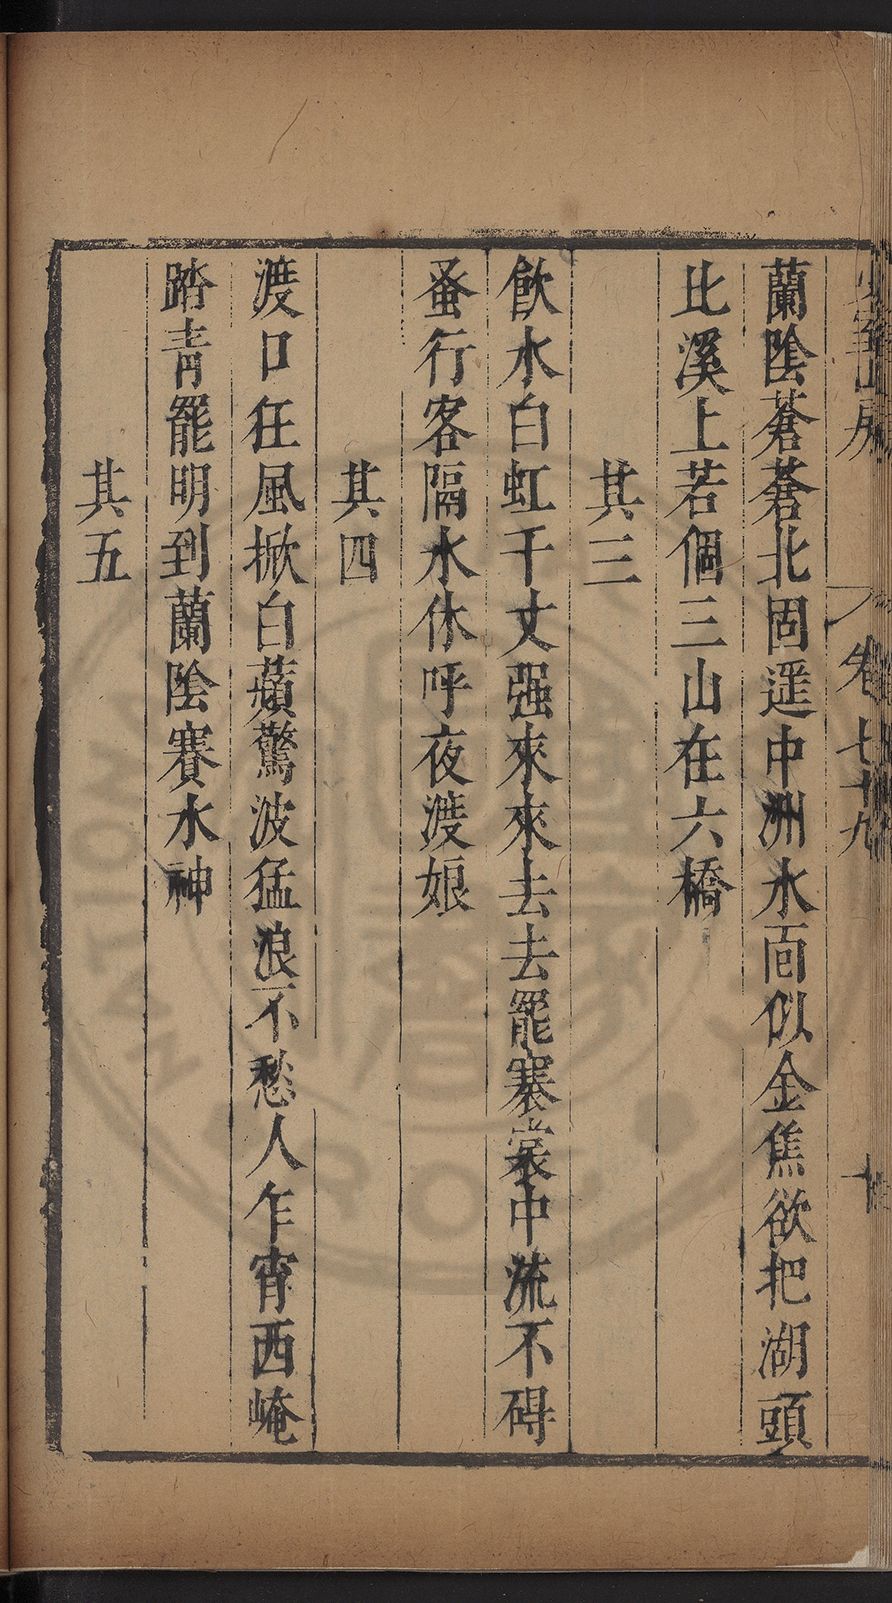 少室山房
卷七十九
十
蘭陰蒼蒼北固遥中洲水面似金焦欲把湖頭
比溪上若個三山在六橋
其三
飲水白虹千丈强來來去去罷褰裳中流不碍
蚤行客隔水休呼夜渡娘
其四
渡口狂風掀白蘋驚波猛浪不愁人乍宵西崦
踏青罷明到蘭陰賽水神
其五